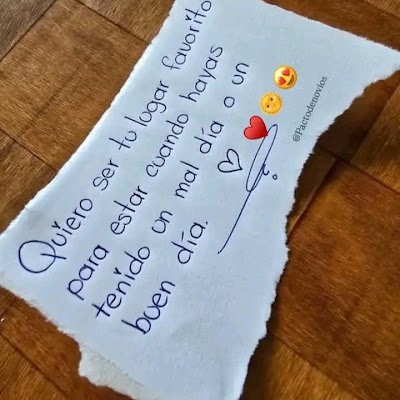 Quiero ser tu lugar favorito
para estar cuando hayas
tenido un mal día o un
buen día.
@Pactodenovios